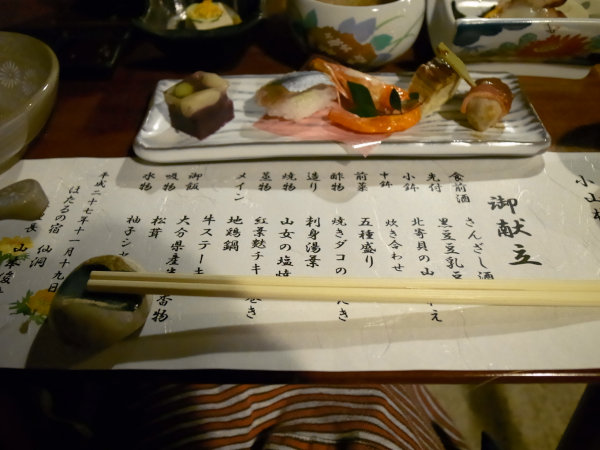 小山
御献立
食前酒 さんざし酒
先付 黒豆豆乳豆
小鉢 北寄貝の山 え
中鉢 炊き合わせ
前菜 五種盛り
酢物 焼きダコの たき
造り 刺身湯葉
焼物 山女の塩焼
蒸物 紅葉麩チキ 巻き
メイン 地鶏鍋
牛ステー
御飯 大分県産 香物
吸物 松茸
水物 柚子シャ
平成二十七年十一月十九日
ほたるの宿 仙洞
長 山本俊